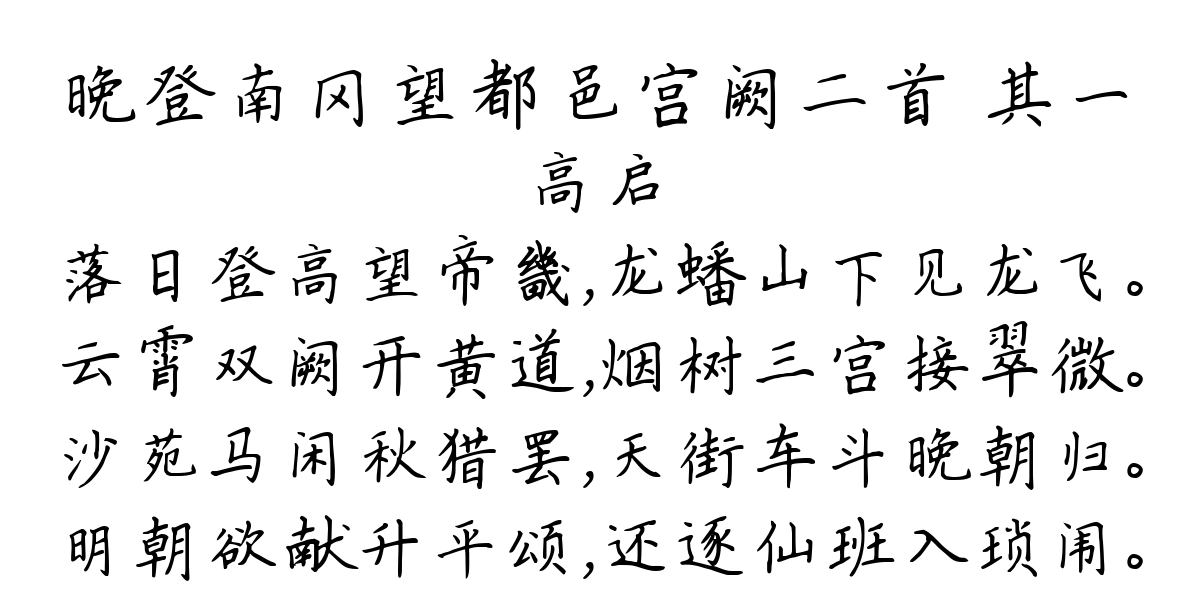 晚登南冈望都邑宫阙二首 其一
高启
落日登高望帝畿,龙蟠山下见龙飞。
云霄双阙开黄道,烟树三宫接翠微。
沙苑马闲秋猎罢,天街车斗晚朝归。
明朝欲献升平颂,还逐仙班入琐闱。